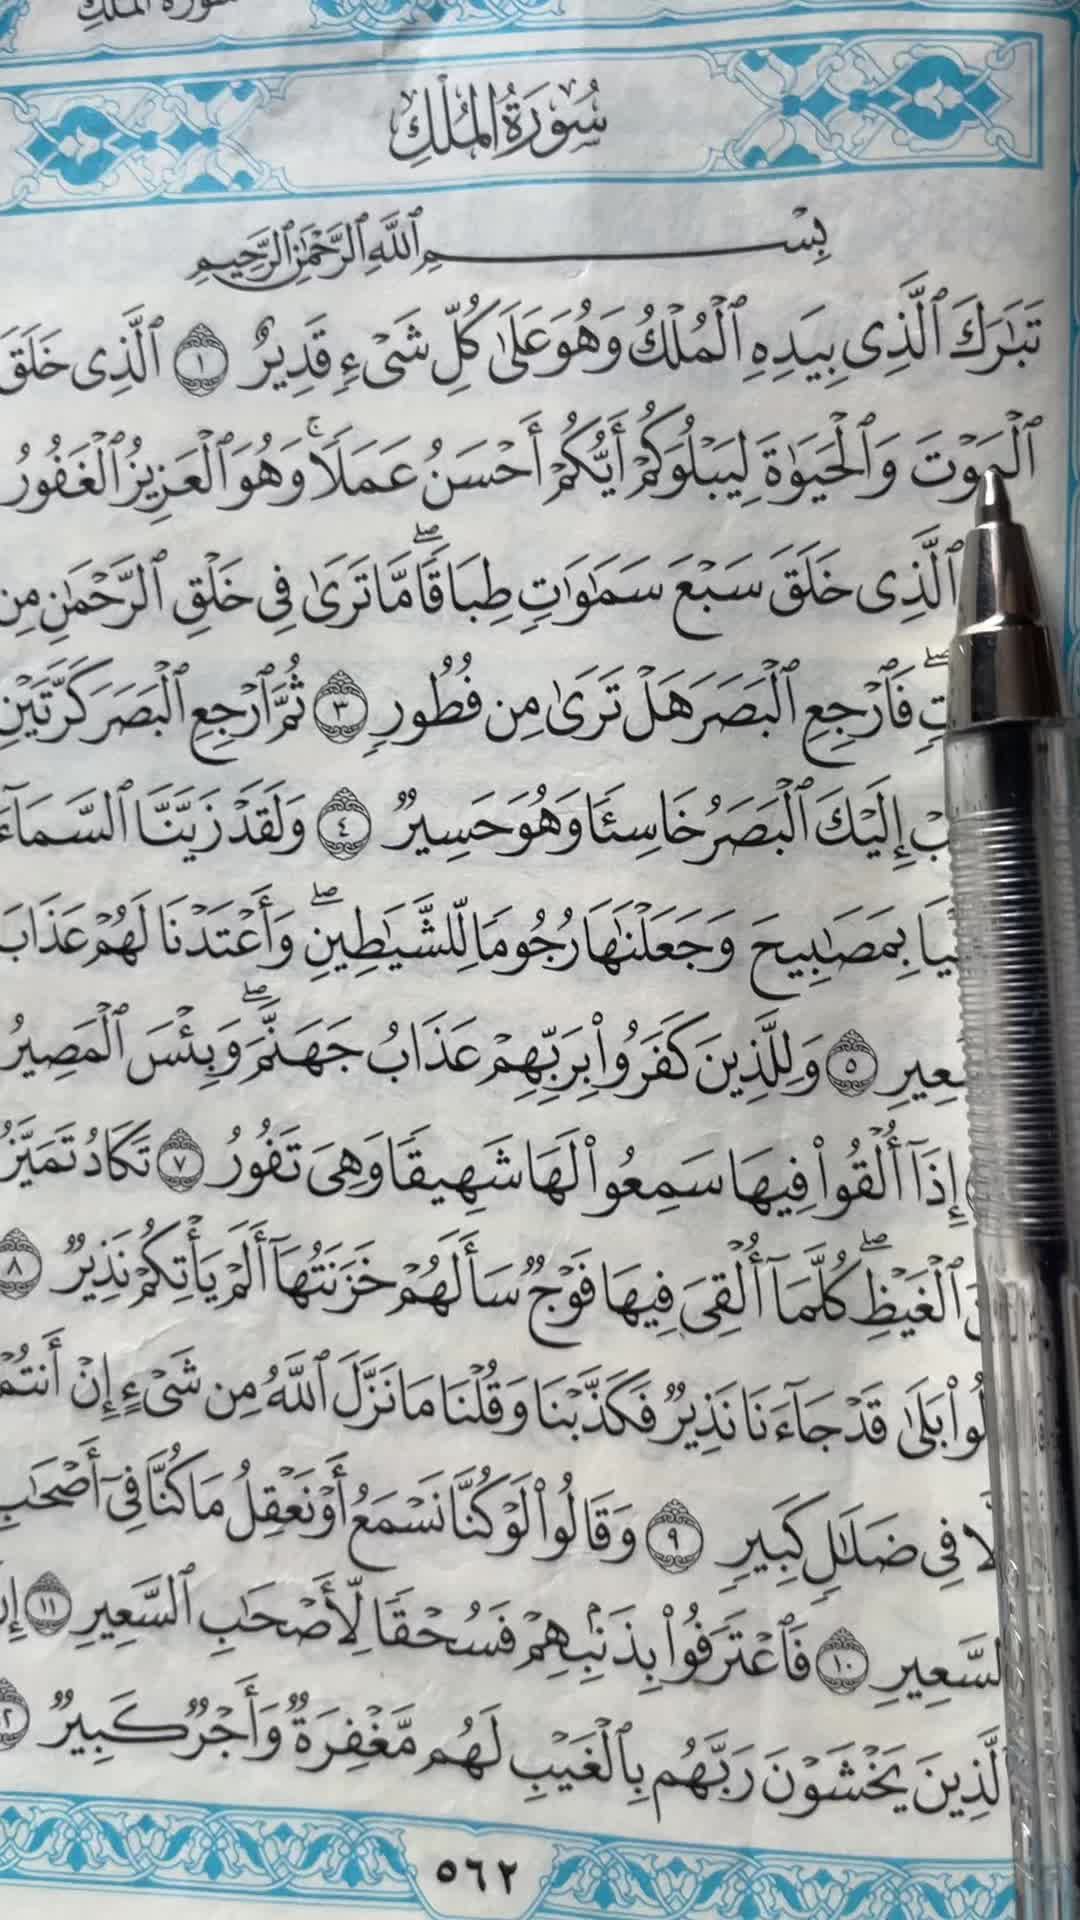 سُورَةُ المُلْكِ
بِسْمِ ٱللَّهِ ٱلرَّحْمَٰنِ ٱلرَّحِيمِ
تَبَٰرَكَ ٱلَّذِى بِيَدِهِ ٱلْمُلْكُ وَهُوَ عَلَىٰ كُلِّ شَىْءٍ قَدِيرٌ ١ ٱلَّذِى خَلَقَ
ٱلْمَوْتَ وَٱلْحَيَوٰةَ لِيَبْلُوَكُمْ أَيُّكُمْ أَحْسَنُ عَمَلًا ۚ وَهُوَ ٱلْعَزِيزُ ٱلْغَفُورُ
ٱلَّذِى خَلَقَ سَبْعَ سَمَٰوَٰتٍ طِبَاقًا ۖ مَّا تَرَىٰ فِى خَلْقِ ٱلرَّحْمَٰنِ مِن
ۖ فَٱرْجِعِ ٱلْبَصَرَ هَلْ تَرَىٰ مِن فُطُورٍ ٣ ثُمَّ ٱرْجِعِ ٱلْبَصَرَ كَرَّتَيْنِ
إِلَيْكَ ٱلْبَصَرُ خَاسِئًا وَهُوَ حَسِيرٌ ٤ وَلَقَدْ زَيَّنَّا ٱلسَّمَآءَ
بِمَصَٰبِيحَ وَجَعَلْنَٰهَا رُجُومًا لِّلشَّيَٰطِينِ ۖ وَأَعْتَدْنَا لَهُمْ عَذَابَ
٥ وَلِلَّذِينَ كَفَرُوا۟ بِرَبِّهِمْ عَذَابُ جَهَنَّمَ ۖ وَبِئْسَ ٱلْمَصِيرُ
إِذَآ أُلْقُوا۟ فِيهَا سَمِعُوا۟ لَهَا شَهِيقًا وَهِىَ تَفُورُ ٧ تَكَادُ تَمَيَّزُ
ٱلْغَيْظِ ۖ كُلَّمَآ أُلْقِىَ فِيهَا فَوْجٌ سَأَلَهُمْ خَزَنَتُهَآ أَلَمْ يَأْتِكُمْ نَذِيرٌ ٨
بَلَىٰ قَدْ جَآءَنَا نَذِيرٌ فَكَذَّبْنَا وَقُلْنَا مَا نَزَّلَ ٱللَّهُ مِن شَىْءٍ إِنْ أَنتُمْ
فِى ضَلَٰلٍ كَبِيرٍ ٩ وَقَالُوا۟ لَوْ كُنَّا نَسْمَعُ أَوْ نَعْقِلُ مَا كُنَّا فِىٓ أَصْحَٰبِ
ٱلسَّعِيرِ ١٠ فَٱعْتَرَفُوا۟ بِذَنۢبِهِمْ فَسُحْقًا لِّأَصْحَٰبِ ٱلسَّعِيرِ ١١
ٱلَّذِينَ يَخْشَوْنَ رَبَّهُم بِٱلْغَيْبِ لَهُم مَّغْفِرَةٌ وَأَجْرٌ كَبِيرٌ
٥٦٢